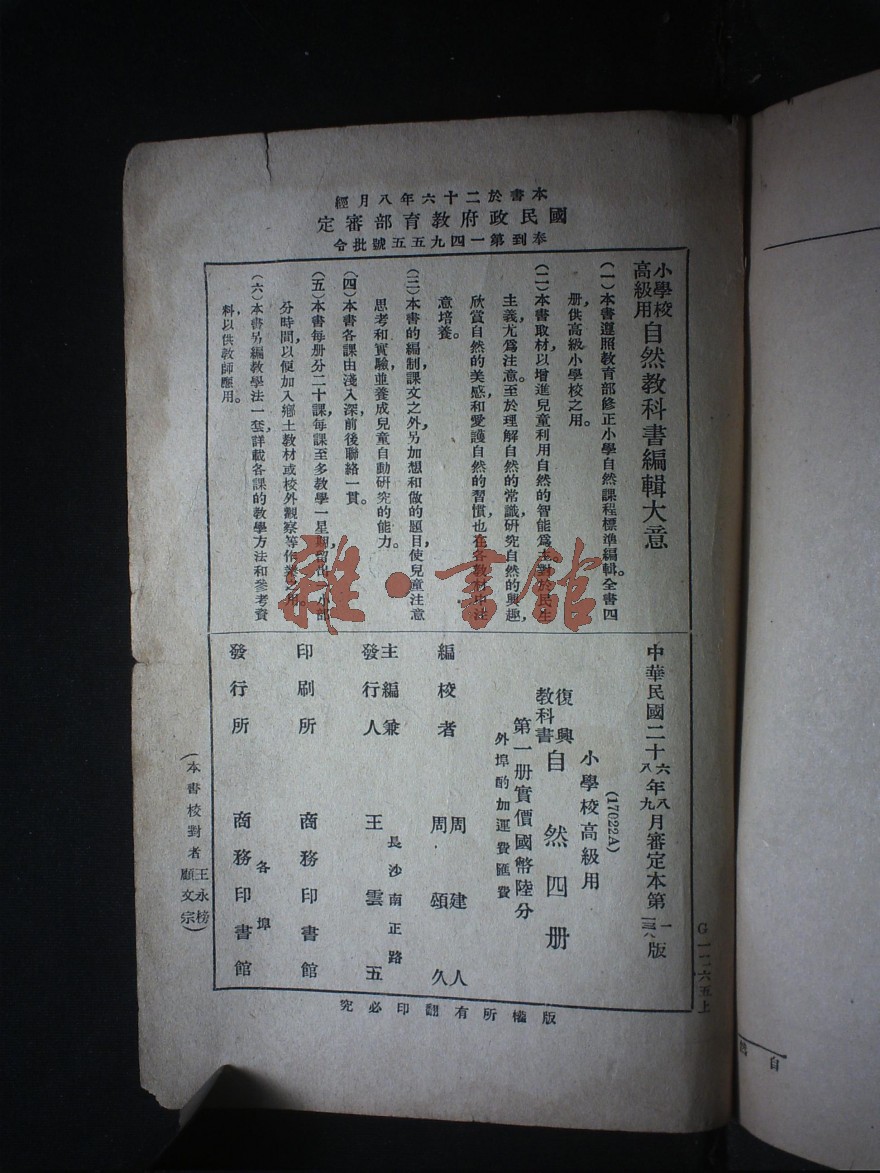 本書於二十六年八月經
國民政府教育部審定
奉到第一四九五五號批令
小學校高級用自然教科書編輯大意
（一）本書遵照教育部修正小學自然課程標準編輯。全書四
册，供高級小學校之用。
（二）本書取材，以增進兒童利用自然的智能爲主。對於民生
主義，尤爲注意。至於理解自然的常識，研究自然的興趣，
欣賞自然的美感和愛護自然的習慣，也在各教材中注
意培養。
（三）本書的編制，課文之外，另加想和做的題目，使兒童注意
思考和實驗，並養成兒童自動研究的能力。
（四）本書各課由淺入深，前後聯絡一貫。
（五）本書每册分二十課，每課至多教學一星期，留出一小部
分時間，以便加入鄉土教材或校外觀察等作業之用。
（六）本書另編教學法一套，詳載各課的教學方法和參考資
料，以供教師應用。
中華民國二十六年八月審定本第一版
八九
(17022A)
小學校高級用
復興教科書自然四册
第一册實價國幣陸分
外埠酌加運費匯費
編校者 周建人
周頌久
主編兼發行人 王雲五
長沙南正路
印刷所 商務印書館
發行所 商務印書館
各埠
(本書校對者王永榜顧文宗)
G一一六五上
版權所有翻印必究
雜·書館
自